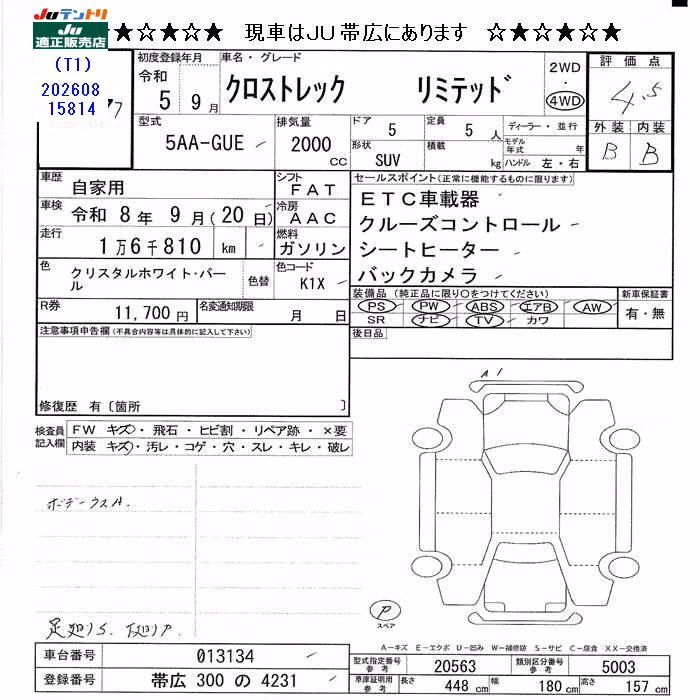 Juテントリ
JU
適正販売店
★☆★☆★ 現車はJU帯広にあります ☆★☆★☆★
(T1)
202608
15814
初度登録年月
令和
5 9月
車名・グレード
クロストレック リミテッド
2WD
・
4WD
評価点
4.5
外装 内装
B B
型式
5AA-GUE
排気量
2000
cc
ドア 5
定員 5 人
形状
SUV
積載
kg
ディーラー・並行
モデル年式 年
ハンドル 左・右
車歴
自家用
シフト
FAT
車検
令和 8年 9月(20日)
冷房
AAC
走行
1万6千810 km
燃料
ガソリン
色
クリスタルホワイト・パール
色替
色コード
K1X
R券
11,700円
名変通知期限
月 日
セールスポイント(正常に機能するものに限ります)
ETC車載器
クルーズコントロール
シートヒーター
バックカメラ
装備品 (純正品に限り○をつけてください)
PS PW ABS エアB AW
SR ナビ TV カワ
新車保証書
有・無
後日品
注意事項申告欄(不具合内容等は具体的に記入して下さい)
修復歴 有〔箇所 〕
検査員記入欄
FW キズ・飛石・ヒビ割・リペア跡・×要
内装 キズ・汚レ・コゲ・穴・スレ・キレ・破レ
A1
ボデーウスA.
足廻りS. 下廻りP.
P
スペア
A-キズ E-エクボ U-凹み W-補修跡 S-サビ C-腐食 XX-交換済
車台番号
013134
登録番号
帯広 300 の 4231
型式指定番号
参考
20563
類別区分番号
参考
5003
車庫証明用
参考
長さ 448 cm
幅 180 cm
高さ 157 cm